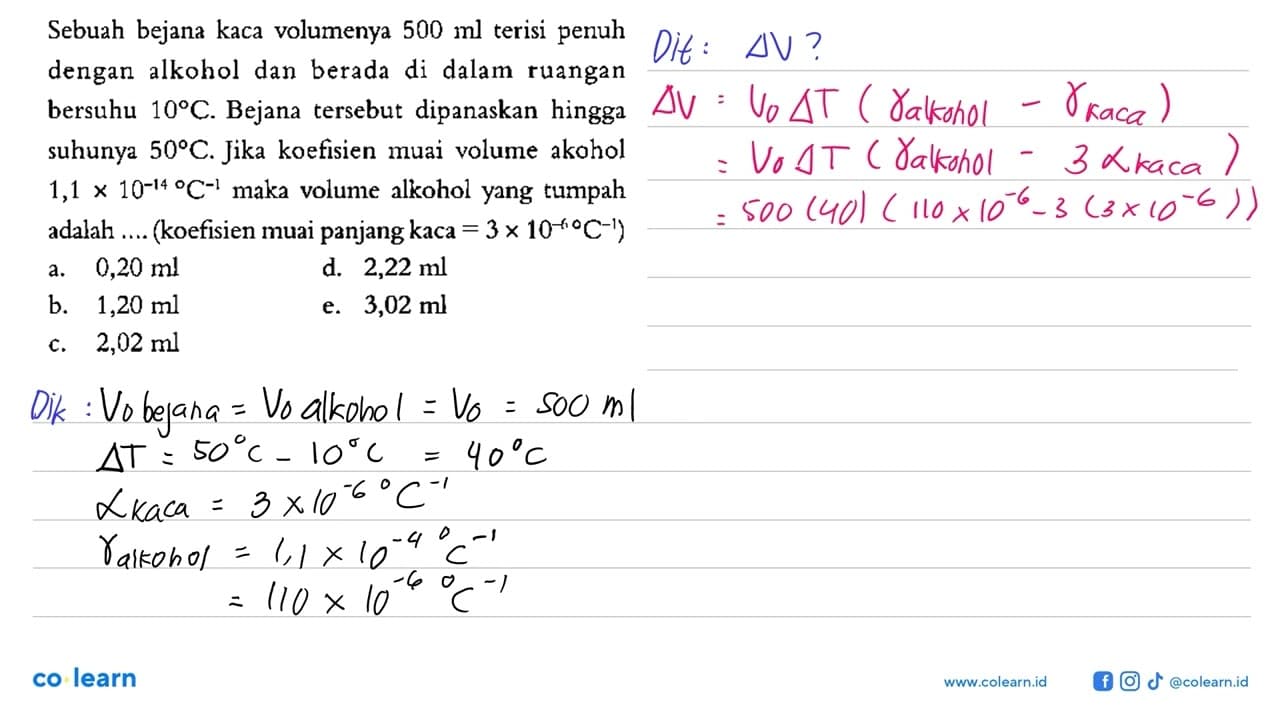 Sebuah bejana kaca volumenya 500 ml terisi penuh
dengan alkohol dan berada di dalam ruangan
bersuhu 10°C. Bejana tersebut dipanaskan hingga
suhunya 50°C. Jika koefisien muai volume akohol
1,1 × 10⁻¹⁴ °C⁻¹ maka volume alkohol yang tumpah
adalah .... (koefisien muai panjang kaca = 3 × 10⁻⁶ °C⁻¹)
a. 0,20 ml d. 2,22 ml
b. 1,20 ml e. 3,02 ml
c. 2,02 ml
Dik : V₀ bejana = V₀ alkohol = V₀ = 500 ml
ΔT = 50°C - 10°C = 40°C
α kaca = 3 × 10⁻⁶ °C⁻¹
γ alkohol = 1,1 × 10⁻⁴ °C⁻¹
= 110 × 10⁻⁶ °C⁻¹
Dit : ΔV ?
ΔV = V₀ ΔT ( γ alkohol - γ kaca )
= V₀ ΔT ( γ alkohol - 3 α kaca )
= 500 (40) ( 110 × 10⁻⁶ - 3 (3 × 10⁻⁶ ))
co learn
www.colearn.id
@colearn.id